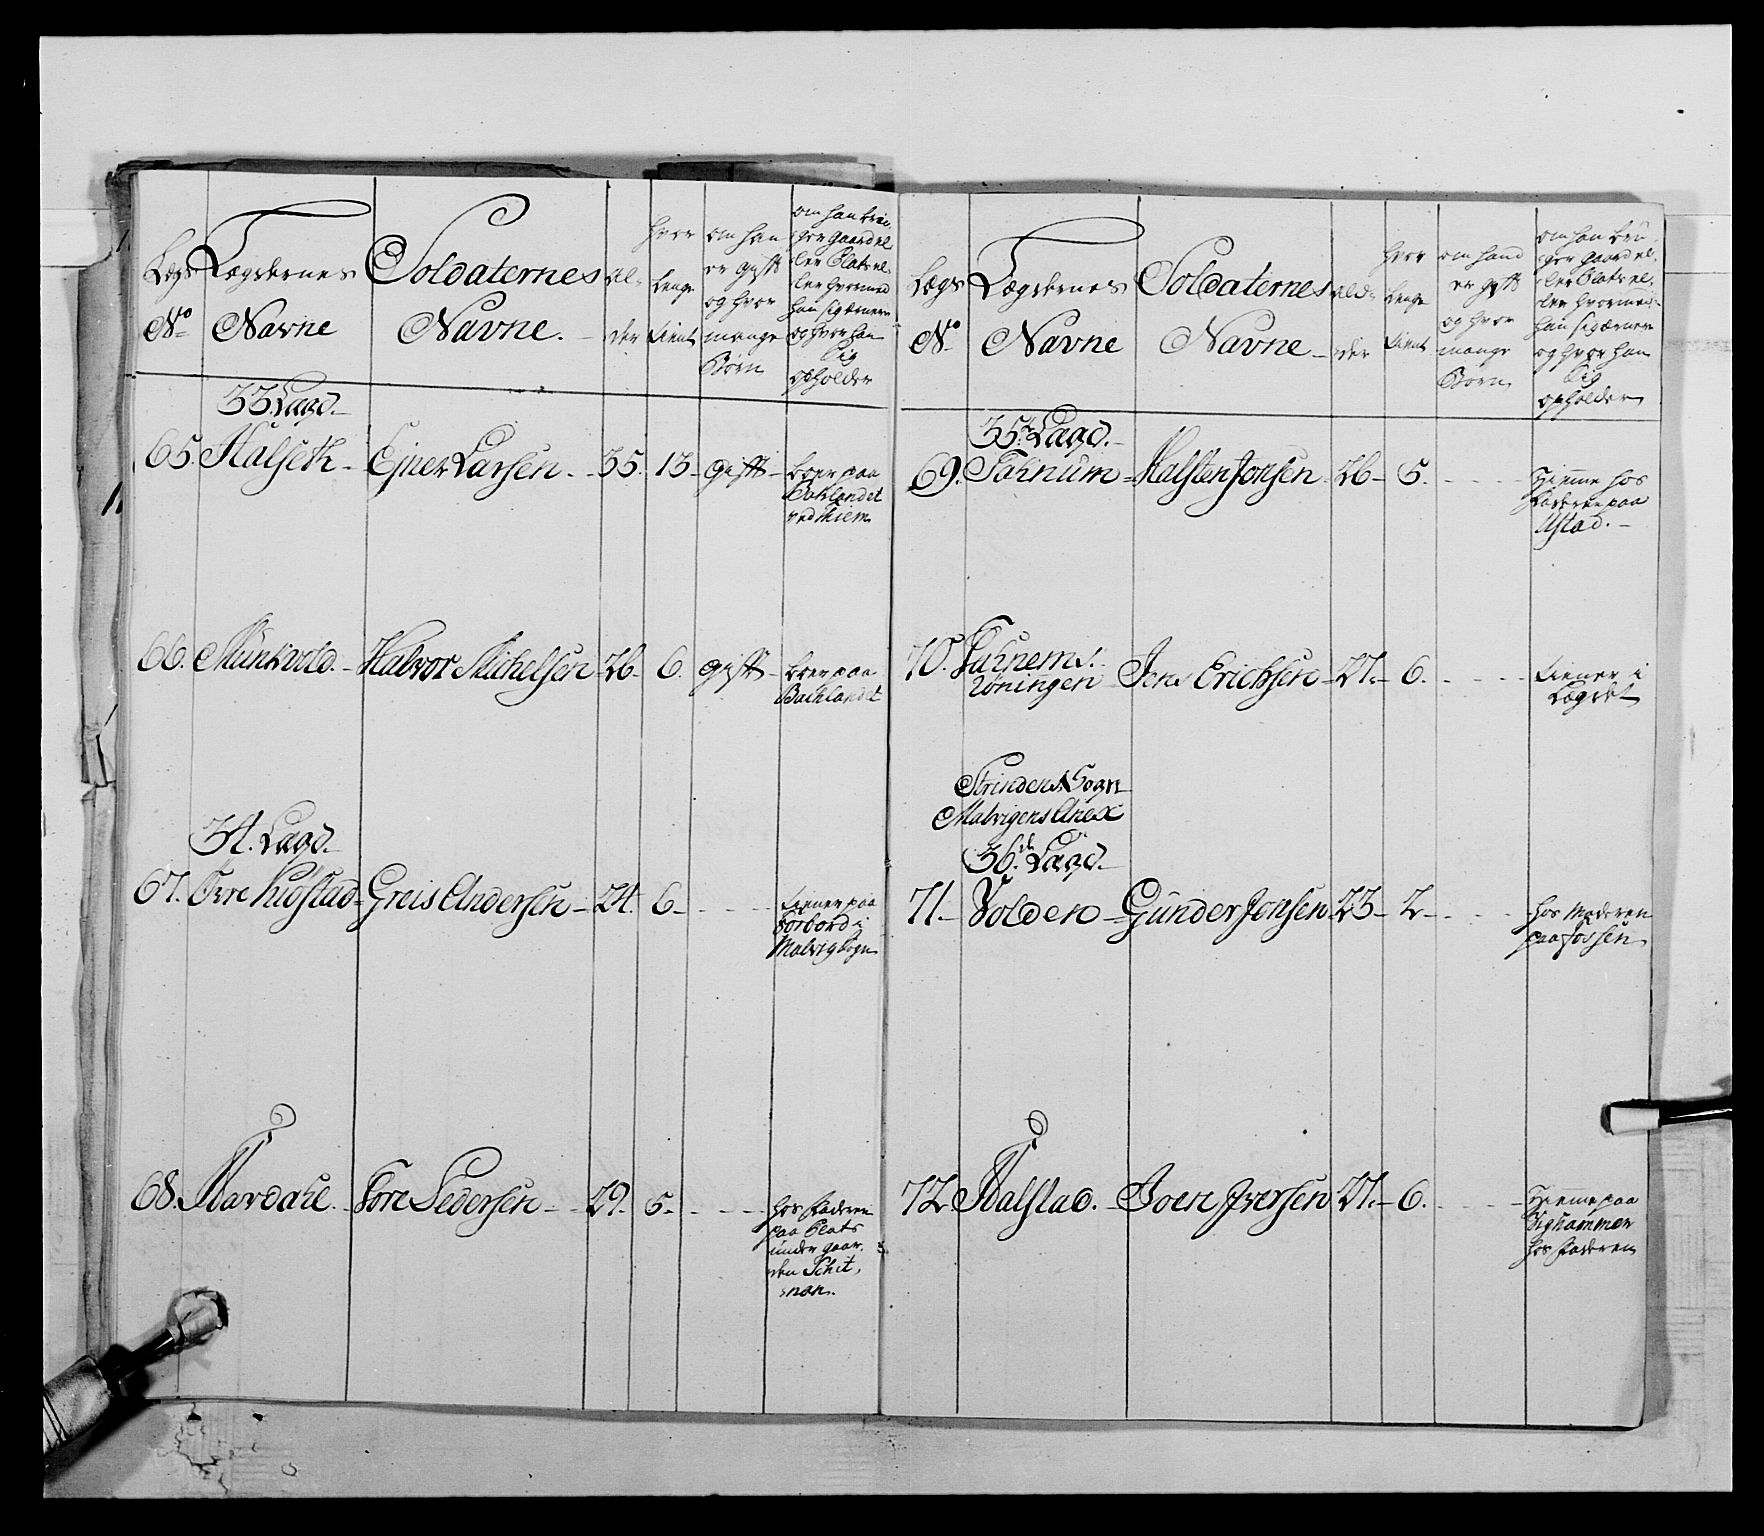 Lægs
No
Lægdernes
Navne
Soldaternes
Navne.
Al-
der
hvor
lenge
tient
om han
er gift
og hvor
mange
Børn
om han bru-
ger gaard el
ler Plats el-
ler hvormed
han sig ernerer
og hvor han
sig
opholder
33. Lægd.
65. Halseth - Ejner Larsen. - 35. 13 - gift - boer paa
Baklandet
ved Tiem
66. Munkvold. - Halvor Michelsen - 26 - 6. gift - boer paa
Baklandet
34. Lægd.
67. Øvre Hugstad - Greis Andersen - 24. 6 - tiener paa
Forbord i
Malvig Sogn
68. Mardahl - Tore Pedersen - 29. 5 - hos Faderen
paa Plats
under gaar-
den Schit,
nan.
Lægs
No
Lægdernes
Navne
Soldaternes
Navne
Ald-
der
hvor
lenge
tient
om hand
er gift
og hvor
mange
Børn
om han bru-
ger gaard el-
ler Plats el-
ler hvormed
han sig ernerer
og hvor han
sig
opholder
35. Lægd.
69. Fahnum - Halsten Jonsen - 26 - 5. - hiemme hos
Faderen paa
Ustad. -
70. Fahnems-
röningen - Jens Erichsen - 27. - 6. - tiener i
Lægdet
Strindens Sogn
Malvigens Anex
36de Lægd.
71 - Volden - Gunder Jonsen - 23 - 2 - hos Moderen
paa Fossen
72 Halstad. - Joen Iversen - 27. - 6. - hiemme paa
Vighammer
hos Faderen